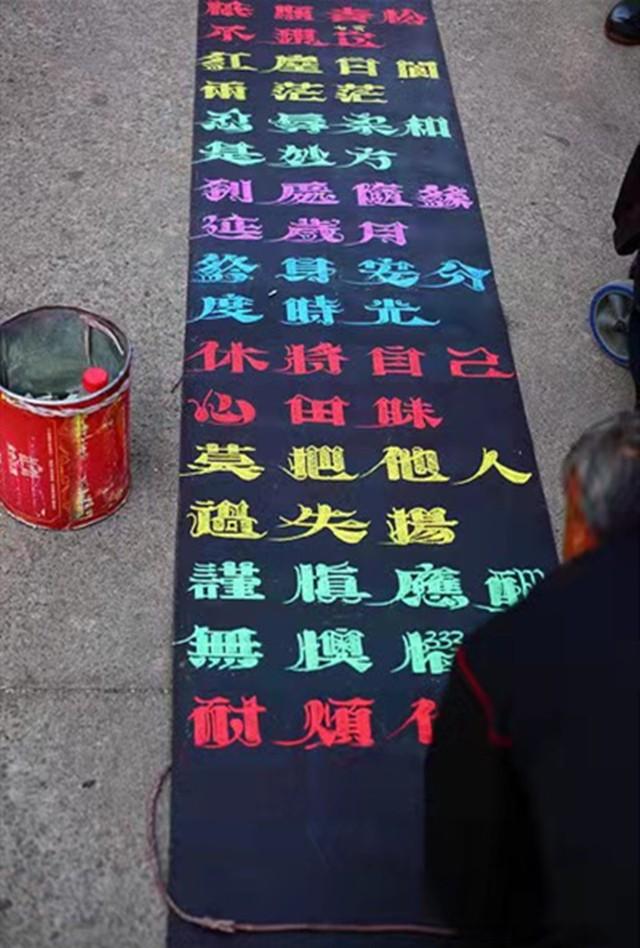 不現
紅塵
兩茫茫
忍辱柔相
是妙方
到處隨緣
延歲月
終身安分
度時光
休將自己
心田昧
莫把他人
過失揚
謹慎應酬
無懊惱
耐煩